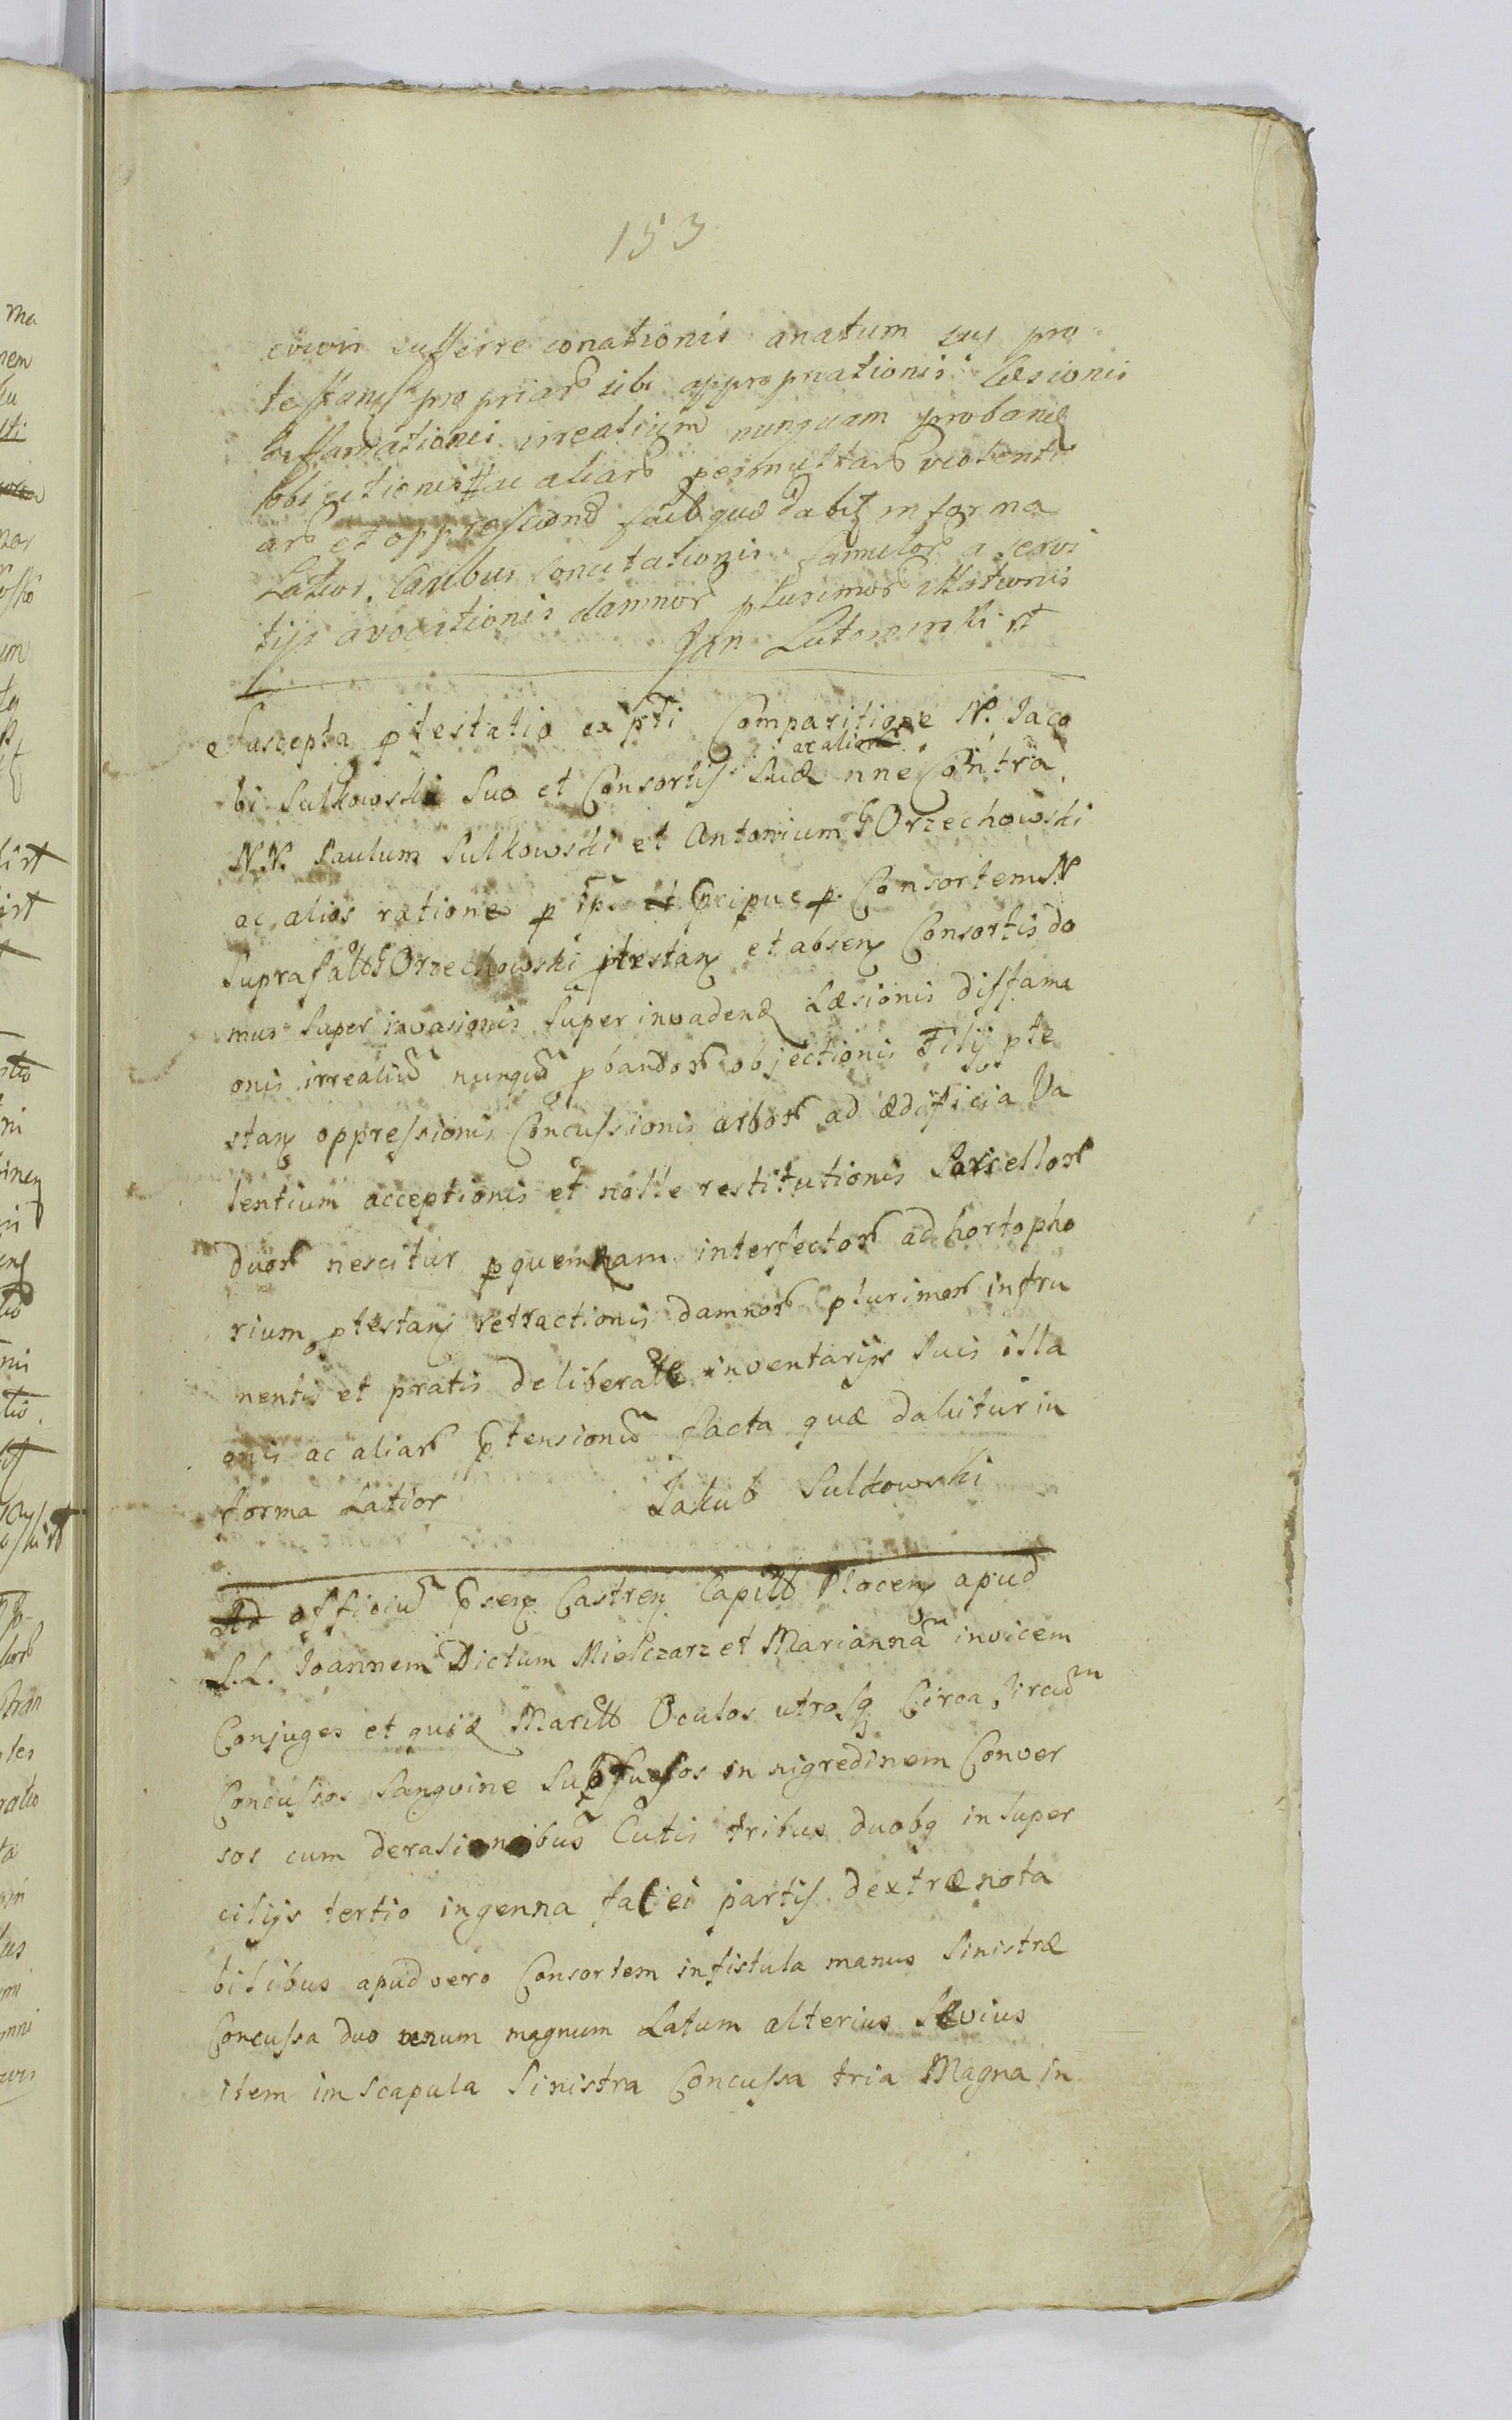 153
evivis sufferre conationis anatum suis pro
testans propriar sibi appropriationis læsionis
deffamationis irrealium nunquam proband
objectionis ac aliar permultar violenti
ar et oppressionu facta quæ dabit in forma
Latior. Canibus concitationis famulor a servi
tijs avocationis damnor plurimor illationis
Jan Lutomirski rt
Suscepta ptestatio ex pti Comparitione N. Jaco
bi Sulkowski Suo et Consortis Suæ ac alior nne Contra
N.N. Paulum Sulkowski et Antonium G Orzechowski
ac alios ratione p et pcipue p Consortem N
Suprafatt G Orzechowski ptestan et absen Consortis do
mus Super invasionis Super invadend Læsionis diffama
onis irrealiu nunqu pbandor objectionis Filij pte
stan oppressionis Concussionis arbor ad ædificia Va
lentium acceptionis et nolle restitutionis Porcellor
duor nescitur p quemnam interfector ad hortopho
rium ptestan retractionis damnor plurimor in fru
mentis et pratis deliberate inventarijs Suis illa
onis ac aliar ptensionu facta quæ dabitur in
forma Latior Jakub Sulkowski
Ad officiu psen Castren Capitt Plocen apud
L.L. Joannem Dictum Mielczarz et Mariannam invicem
Conjuges et quid Maritt Oculos utrosq Circa Circum
Concussos Sangvine Subfusos in nigredinem Conver
sos cum derasionibus Cutis tribus duobq in Super
cilijs tertio in genna faciei partis dextræ nota
bilibus apud vero Consortem in fistula manus Sinistræ
Concussa duo unum magnum Latum alterius Levius
item in Scapula Sinistra Concussa tria Magna in